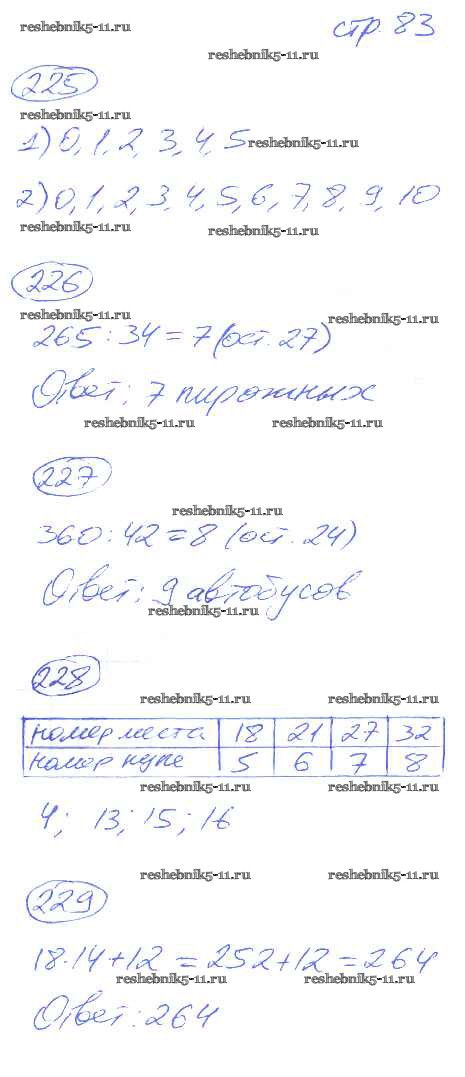 reshebnik5-11.ru стр. 83
reshebnik5-11.ru
225
reshebnik5-11.ru
1) 0, 1, 2, 3, 4, 5 reshebnik5-11.ru
2) 0, 1, 2, 3, 4, 5, 6, 7, 8, 9, 10
reshebnik5-11.ru reshebnik5-11.ru
226
reshebnik5-11.ru reshebnik5-11.ru
265 : 34 = 7 (ост. 27)
Ответ: 7 пирожных
reshebnik5-11.ru reshebnik5-11.ru
227
reshebnik5-11.ru
360 : 42 = 8 (ост. 24)
Ответ: 9 автобусов
reshebnik5-11.ru
228
reshebnik5-11.ru reshebnik5-11.ru
номер места 18 21 27 32
номер купе 5 6 7 8
reshebnik5-11.ru reshebnik5-11.ru
4; 13; 15; 16
reshebnik5-11.ru reshebnik5-11.ru
229
18·14+12 = 252+12 = 264
reshebnik5-11.ru reshebnik5-11.ru
Ответ: 264